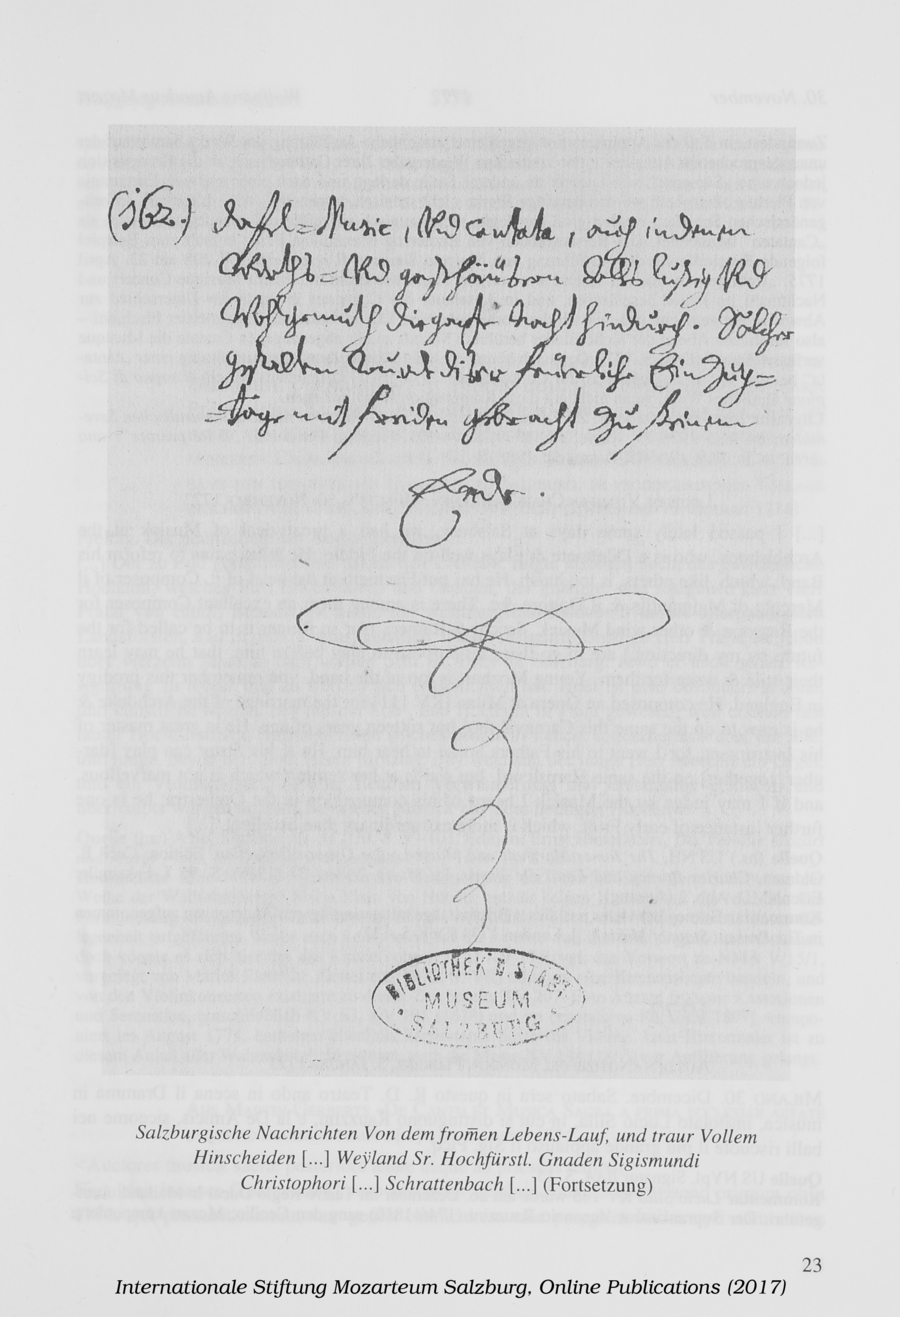 (162.) Dafel=Music, Vnd Cantata, auch in denen
Würths=Vnd gasthäüsern Volls lustig Vnd
Wohlgemuth die gantze Nacht hindurch. Solcher
gestalten wurde diser feuerliche Einzug=
=Tage mit freiden gebracht zu seinem
Ende.
BIBLIOTHEK D. STÄDT.
MUSEUM
SALZBURG
Salzburgische Nachrichten Von dem from̄en Lebens-Lauf, und traur Vollem
Hinscheiden [...] Weÿland Sr. Hochfürstl. Gnaden Sigismundi
Christophori [...] Schrattenbach [...] (Fortsetzung)
23
Internationale Stiftung Mozarteum Salzburg, Online Publications (2017)